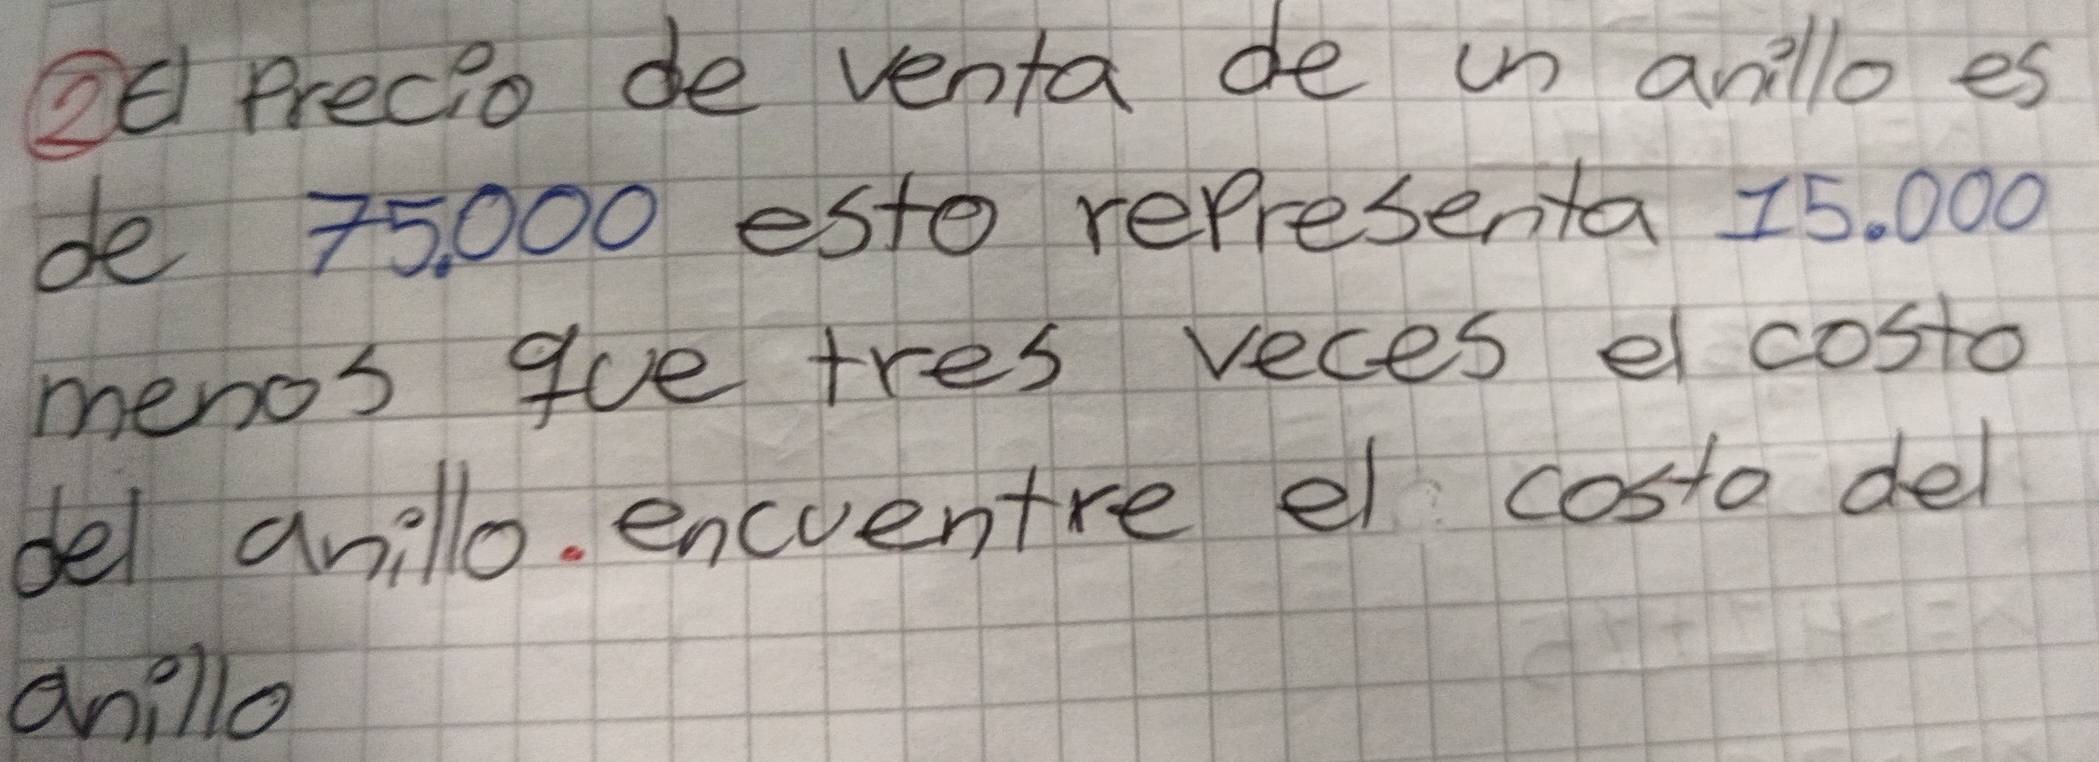 ② El Precio de venta de un anillo es
de 75.000 esto representa 15.000
menos que tres veces el costo
del anillo. encuentre el costo del
anillo